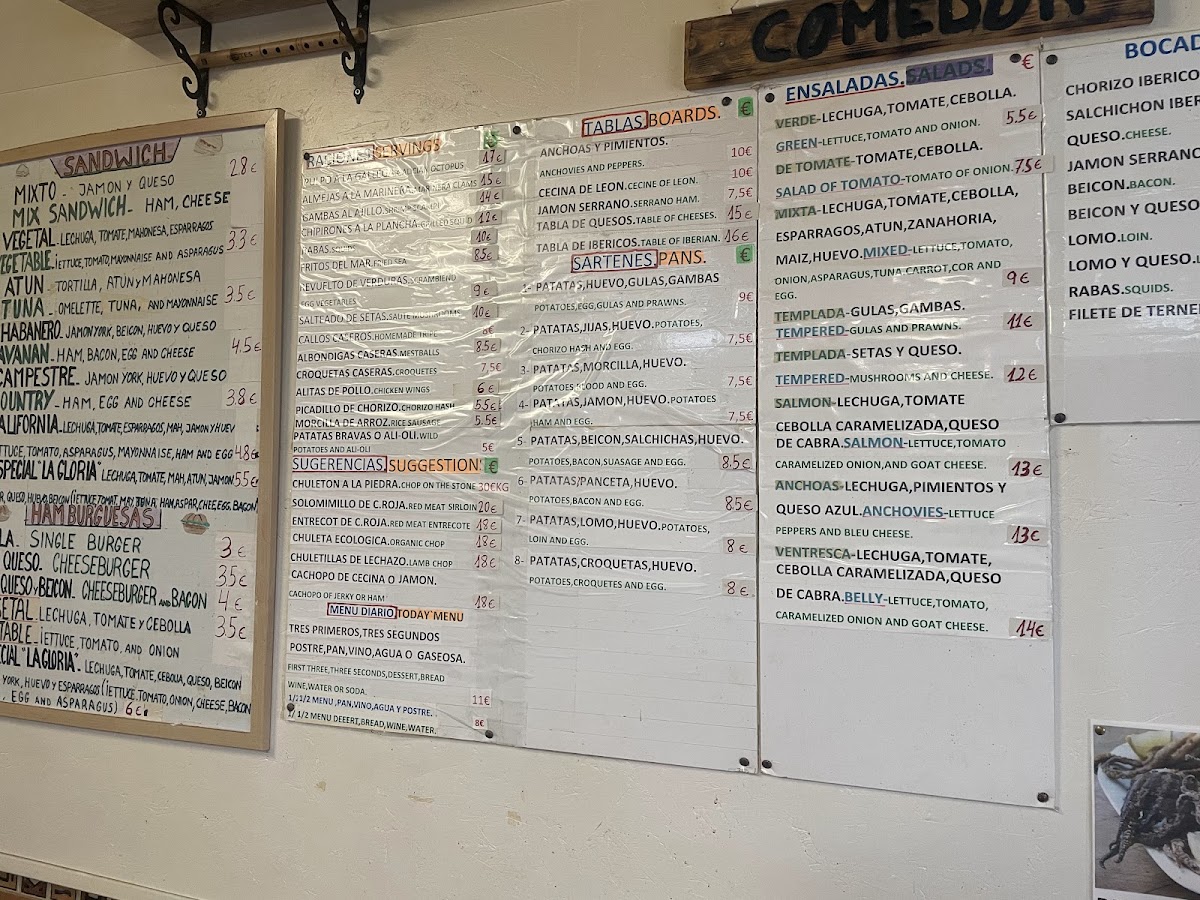 COMEDOR
SANDWICH
MIXTO - JAMON Y QUESO 28€
MIX SANDWICH- HAM, CHEESE
VEGETAL- LECHUGA, TOMATE, MAHONESA, ESPARRAGOS
VEGETABLE- LETTUCE, TOMATO, MAYONNAISE AND ASPARAGUS 33€
ATUN- TORTILLA, ATUN Y MAHONESA
TUNA- OMELETTE, TUNA, AND MAYONNAISE 35€
HABANERO- JAMON YORK, BEICON, HUEVO Y QUESO
AVANAN- HAM, BACON, EGG AND CHEESE 4.5€
CAMPESTRE- JAMON YORK, HUEVO Y QUESO
OUNTRY- HAM, EGG AND CHEESE 38€
ALIFORNIA- LECHUGA, TOMATE, ESPARRAGOS, MAH, JAMON Y HUEV
TTUCE, TOMATO, ASPARAGUS, MAYONNAISE, HAM AND EGG 4.8€
SPECIAL "LA GLORIA" LECHUGA, TOMATE, MAH, ATUN, JAMON 55€
HAMBURGUESAS
LA. SINGLE BURGER 3€
QUESO. CHEESEBURGER 35€
QUESO Y BEICON. CHEESEBURGER AND BACON 4€
ETAL LECHUGA, TOMATE Y CEBOLLA 35€
TABLE- LETTUCE, TOMATO, AND ONION
CIAL "LA GLORIA"- LECHUGA, TOMATE, CEBOLLA, QUESO, BEICON
YORK, HUEVO Y ESPARRAGOS (LETTUCE, TOMATO, ONION, CHEESE, BACON
, EGG AND ASPARAGUS) 6€
SERVINGS €
PULPO A LA GALLEGA. OCTOPUS 17€
ALMEJAS A LA MARINERA. CLAMS 15€
GAMBAS AL AJILLO. 14€
CHIPIRONES A LA PLANCHA. GRILLED SQUID 12€
RABAS. 10€
FRITOS DEL MAR. FRIED SEA 8.5€
REVUELTO DE VERDURAS.
EGG VEGETABLES 9€
SALTEADO DE SETAS. SAUTE MUSHROOMS 10€
CALLOS CASEROS. HOMEMADE TRIPE 8€
ALBONDIGAS CASERAS. MESTBALLS 8.5€
CROQUETAS CASERAS. CROQUETES 7,5€
ALITAS DE POLLO. CHICKEN WINGS 6€
PICADILLO DE CHORIZO. CHORIZO HASH 5.5€
MORCILLA DE ARROZ. RICE SAUSAGE 5.5€
PATATAS BRAVAS O ALI-OLI. WILD
POTATOS AND ALI-OLI 5€
SUGERENCIAS. SUGGESTION €
CHULETON A LA PIEDRA. CHOP ON THE STONE 30€KG
SOLOMIMILLO DE C.ROJA. RED MEAT SIRLOIN 20€
ENTRECOT DE C.ROJA. RED MEAT ENTRECOTE 18€
CHULETA ECOLOGICA. ORGANIC CHOP 18€
CHULETILLAS DE LECHAZO. LAMB CHOP 18€
CACHOPO DE CECINA O JAMON.
CACHOPO OF JERKY OR HAM 18€
MENU DIARIO TODAY`MENU
TRES PRIMEROS,TRES SEGUNDOS
POSTRE,PAN,VINO,AGUA O GASEOSA.
FIRST THREE,THREE SECONDS,DESSERT,BREAD
WINE,WATER OR SODA. 11€
1/2 MENU ,PAN,VINO,AGUA Y POSTRE.
1/2 MENU DEEERT,BREAD,WINE,WATER. 8€
TABLAS BOARDS. €
ANCHOAS Y PIMIENTOS.
ANCHOVIES AND PEPPERS. 10€
CECINA DE LEON. CECINE OF LEON. 10€
JAMON SERRANO. SERRANO HAM. 7,5€
TABLA DE QUESOS. TABLE OF CHEESES. 15€
TABLA DE IBERICOS. TABLE OF IBERIAN. 16€
SARTENES. PANS. €
1- PATATAS,HUEVO,GULAS,GAMBAS
POTATOES,EGG,GULAS AND PRAWNS. 9€
2- PATATAS,JIJAS,HUEVO. POTATOES,
CHORIZO HASH AND EGG. 7,5€
3- PATATAS,MORCILLA,HUEVO.
POTATOES,BLOOD AND EGG. 7,5€
4- PATATAS,JAMON,HUEVO. POTATOES
,HAM AND EGG. 7,5€
5- PATATAS,BEICON,SALCHICHAS,HUEVO.
POTATOES,BACON,SUASAGE AND EGG. 8.5€
6- PATATAS/PANCETA,HUEVO.
POTATOES,BACON AND EGG. 85€
7- PATATAS,LOMO,HUEVO. POTATOES,
LOIN AND EGG. 8€
8- PATATAS,CROQUETAS,HUEVO.
POTATOES,CROQUETES AND EGG. 8€
ENSALADAS. SALADS. €
VERDE-LECHUGA,TOMATE,CEBOLLA.
GREEN-LETTUCE,TOMATO AND ONION. 5.5€
DE TOMATE-TOMATE,CEBOLLA.
SALAD OF TOMATO-TOMATO OF ONION. 7.5€
MIXTA-LECHUGA,TOMATE,CEBOLLA,
ESPARRAGOS,ATUN,ZANAHORIA,
MAIZ,HUEVO. MIXED-LETTUCE,TOMATO,
ONION,ASPARAGUS,TUNA,CARROT,COR AND
EGG. 9€
TEMPLADA-GULAS,GAMBAS.
TEMPERED-GULAS AND PRAWNS. 11€
TEMPLADA-SETAS Y QUESO.
TEMPERED-MUSHROOMS AND CHEESE. 12€
SALMON-LECHUGA,TOMATE
CEBOLLA CARAMELIZADA,QUESO
DE CABRA. SALMON-LETTUCE,TOMATO
CARAMELIZED ONION,AND GOAT CHEESE. 13€
ANCHOAS-LECHUGA,PIMIENTOS Y
QUESO AZUL. ANCHOVIES-LETTUCE
PEPPERS AND BLEU CHEESE. 13€
VENTRESCA-LECHUGA,TOMATE,
CEBOLLA CARAMELIZADA,QUESO
DE CABRA. BELLY-LETTUCE,TOMATO,
CARAMELIZED ONION AND GOAT CHEESE. 14€
BOCAD
CHORIZO IBERICO
SALCHICHON IBER
QUESO. CHEESE.
JAMON SERRANO
BEICON. BACON.
BEICON Y QUESO
LOMO. LOIN.
LOMO Y QUESO.
RABAS. SQUIDS.
FILETE DE TERNE